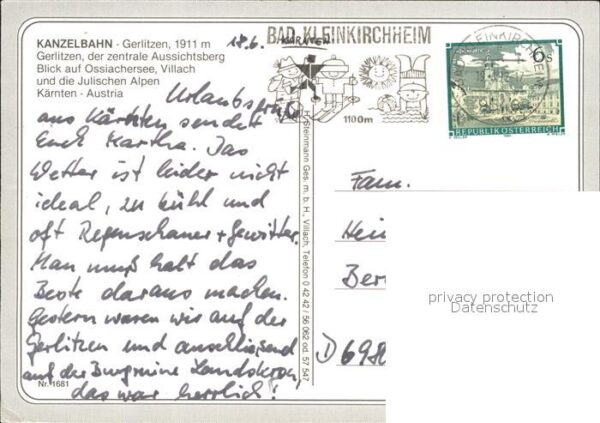 KANZELBAHN - Gerlitzen, 1911 m
Gerlitzen, der zentrale Aussichtsberg
Blick auf Ossiachersee, Villach
und die Julischen Alpen
Kärnten - Austria
18.6.
BAD KLEINKIRCHHEIM
KÄRNTEN
1100m
6s
REPUBLIK ÖSTERREICH
Urlaubsgrüße
aus Kärnten sendet
Euch Martha. Das
Wetter ist leider nicht
ideal, zu kühl und
oft Regenschauer + Gewitter.
Man muß halt das
Beste daraus machen.
Gestern waren wir auf der
Gerlitzen und anschließend
auf der Burgruine Landskron,
das war herrlich!
Nr. 1681
Steinmann Ges. m. b. H., Villach, Telefon 0 42 42 / 56 062 od. 57 547
Fam.
Hein
Ber
D 698
privacy protection
Datenschutz